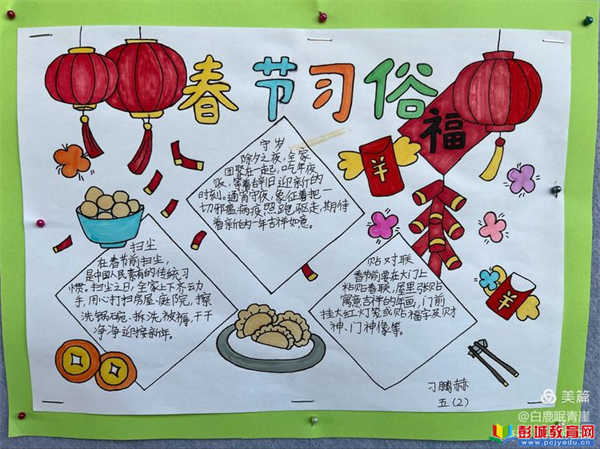 春节习俗
福
守岁
除夕之夜,全家
团聚在一起,吃年夜
饭,等着辞旧迎新的
时刻,通宵守夜,象征着把一
切邪瘟病疫照跑驱走,期待
着新的一年吉祥如意。
扫尘
在春节前扫尘,
是中国人民素有的传统习
惯。扫尘之日,全家上下齐动
手,用心打扫房屋、庭院,擦
洗锅碗、拆洗被褥,干干
净净迎接新年。
贴对联
春节前要在大门上
粘贴春联,屋里张贴
寓意吉祥的年画,门前
挂大红灯笼或贴福字及财
神、门神像等。
刁鹏赫
五(2)
美篇
@白鹿眠青崖
彭城教育网
www.pcjyedu.cn